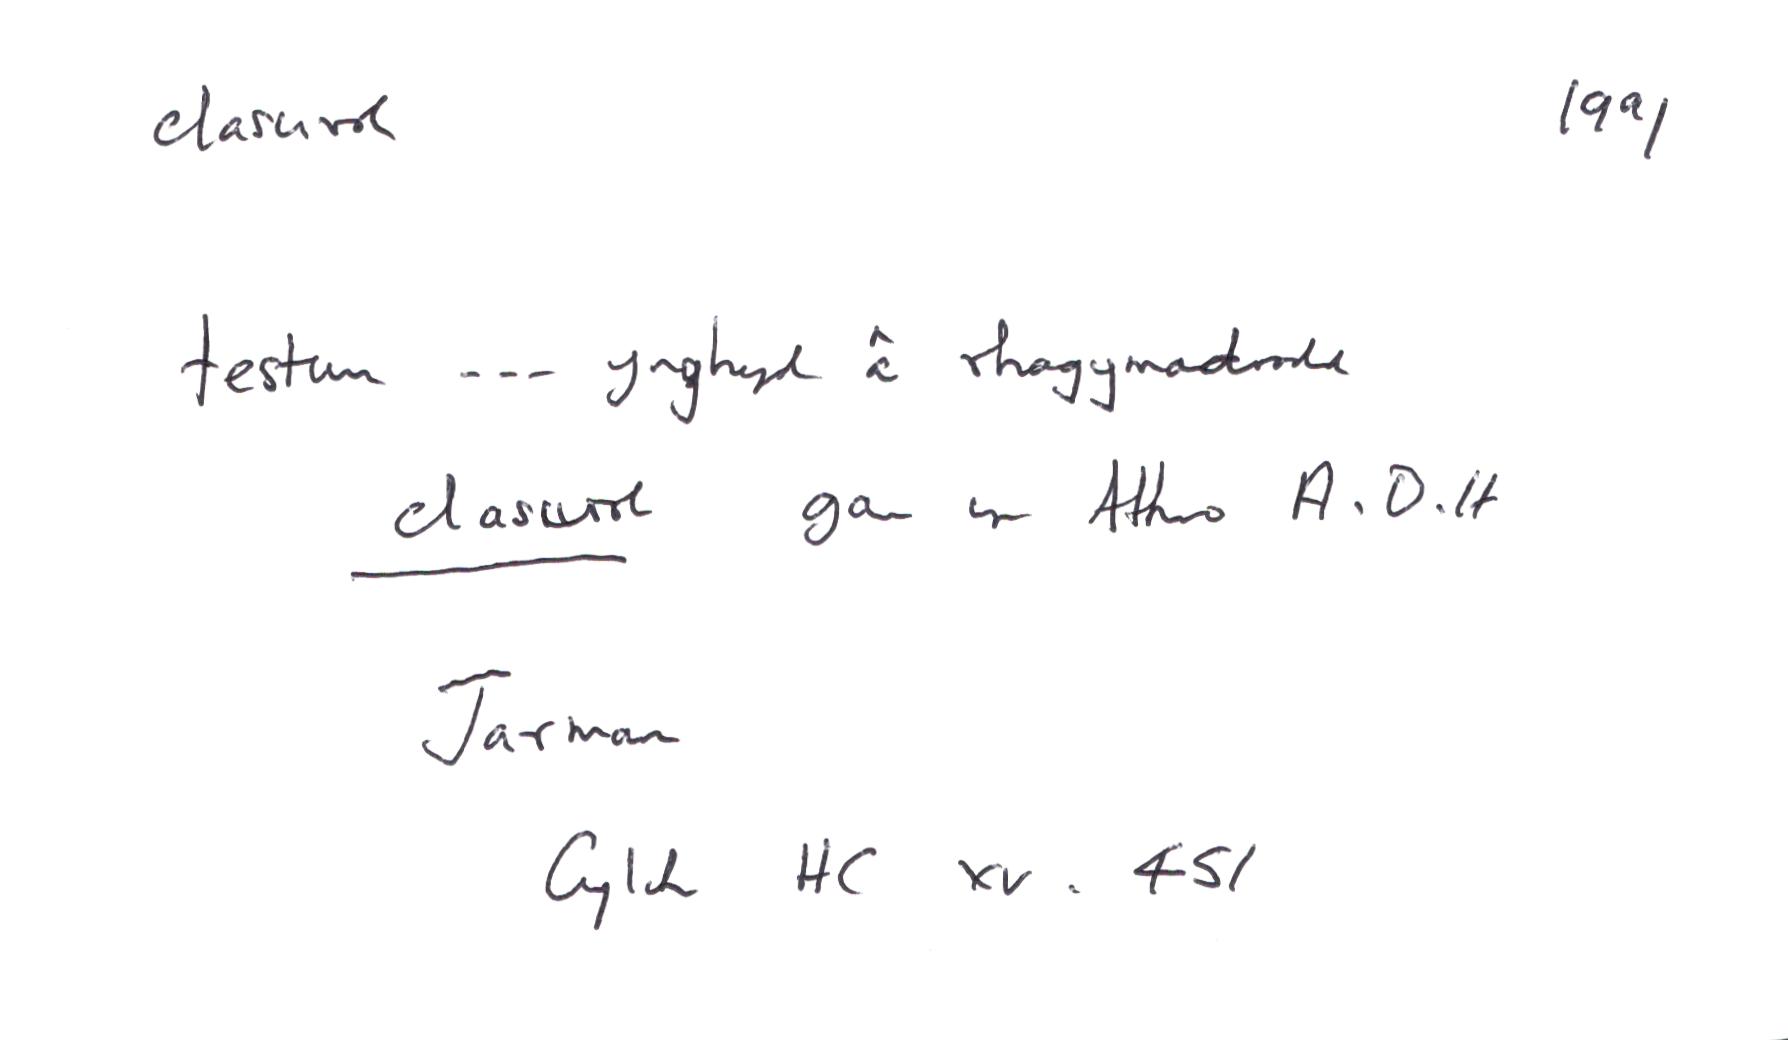 clasurol 1991
testun --- ynghyd â rhagymadrodd
clasurol gan yr Athro A.O.H
Jarman
Cylch HC xv. 451